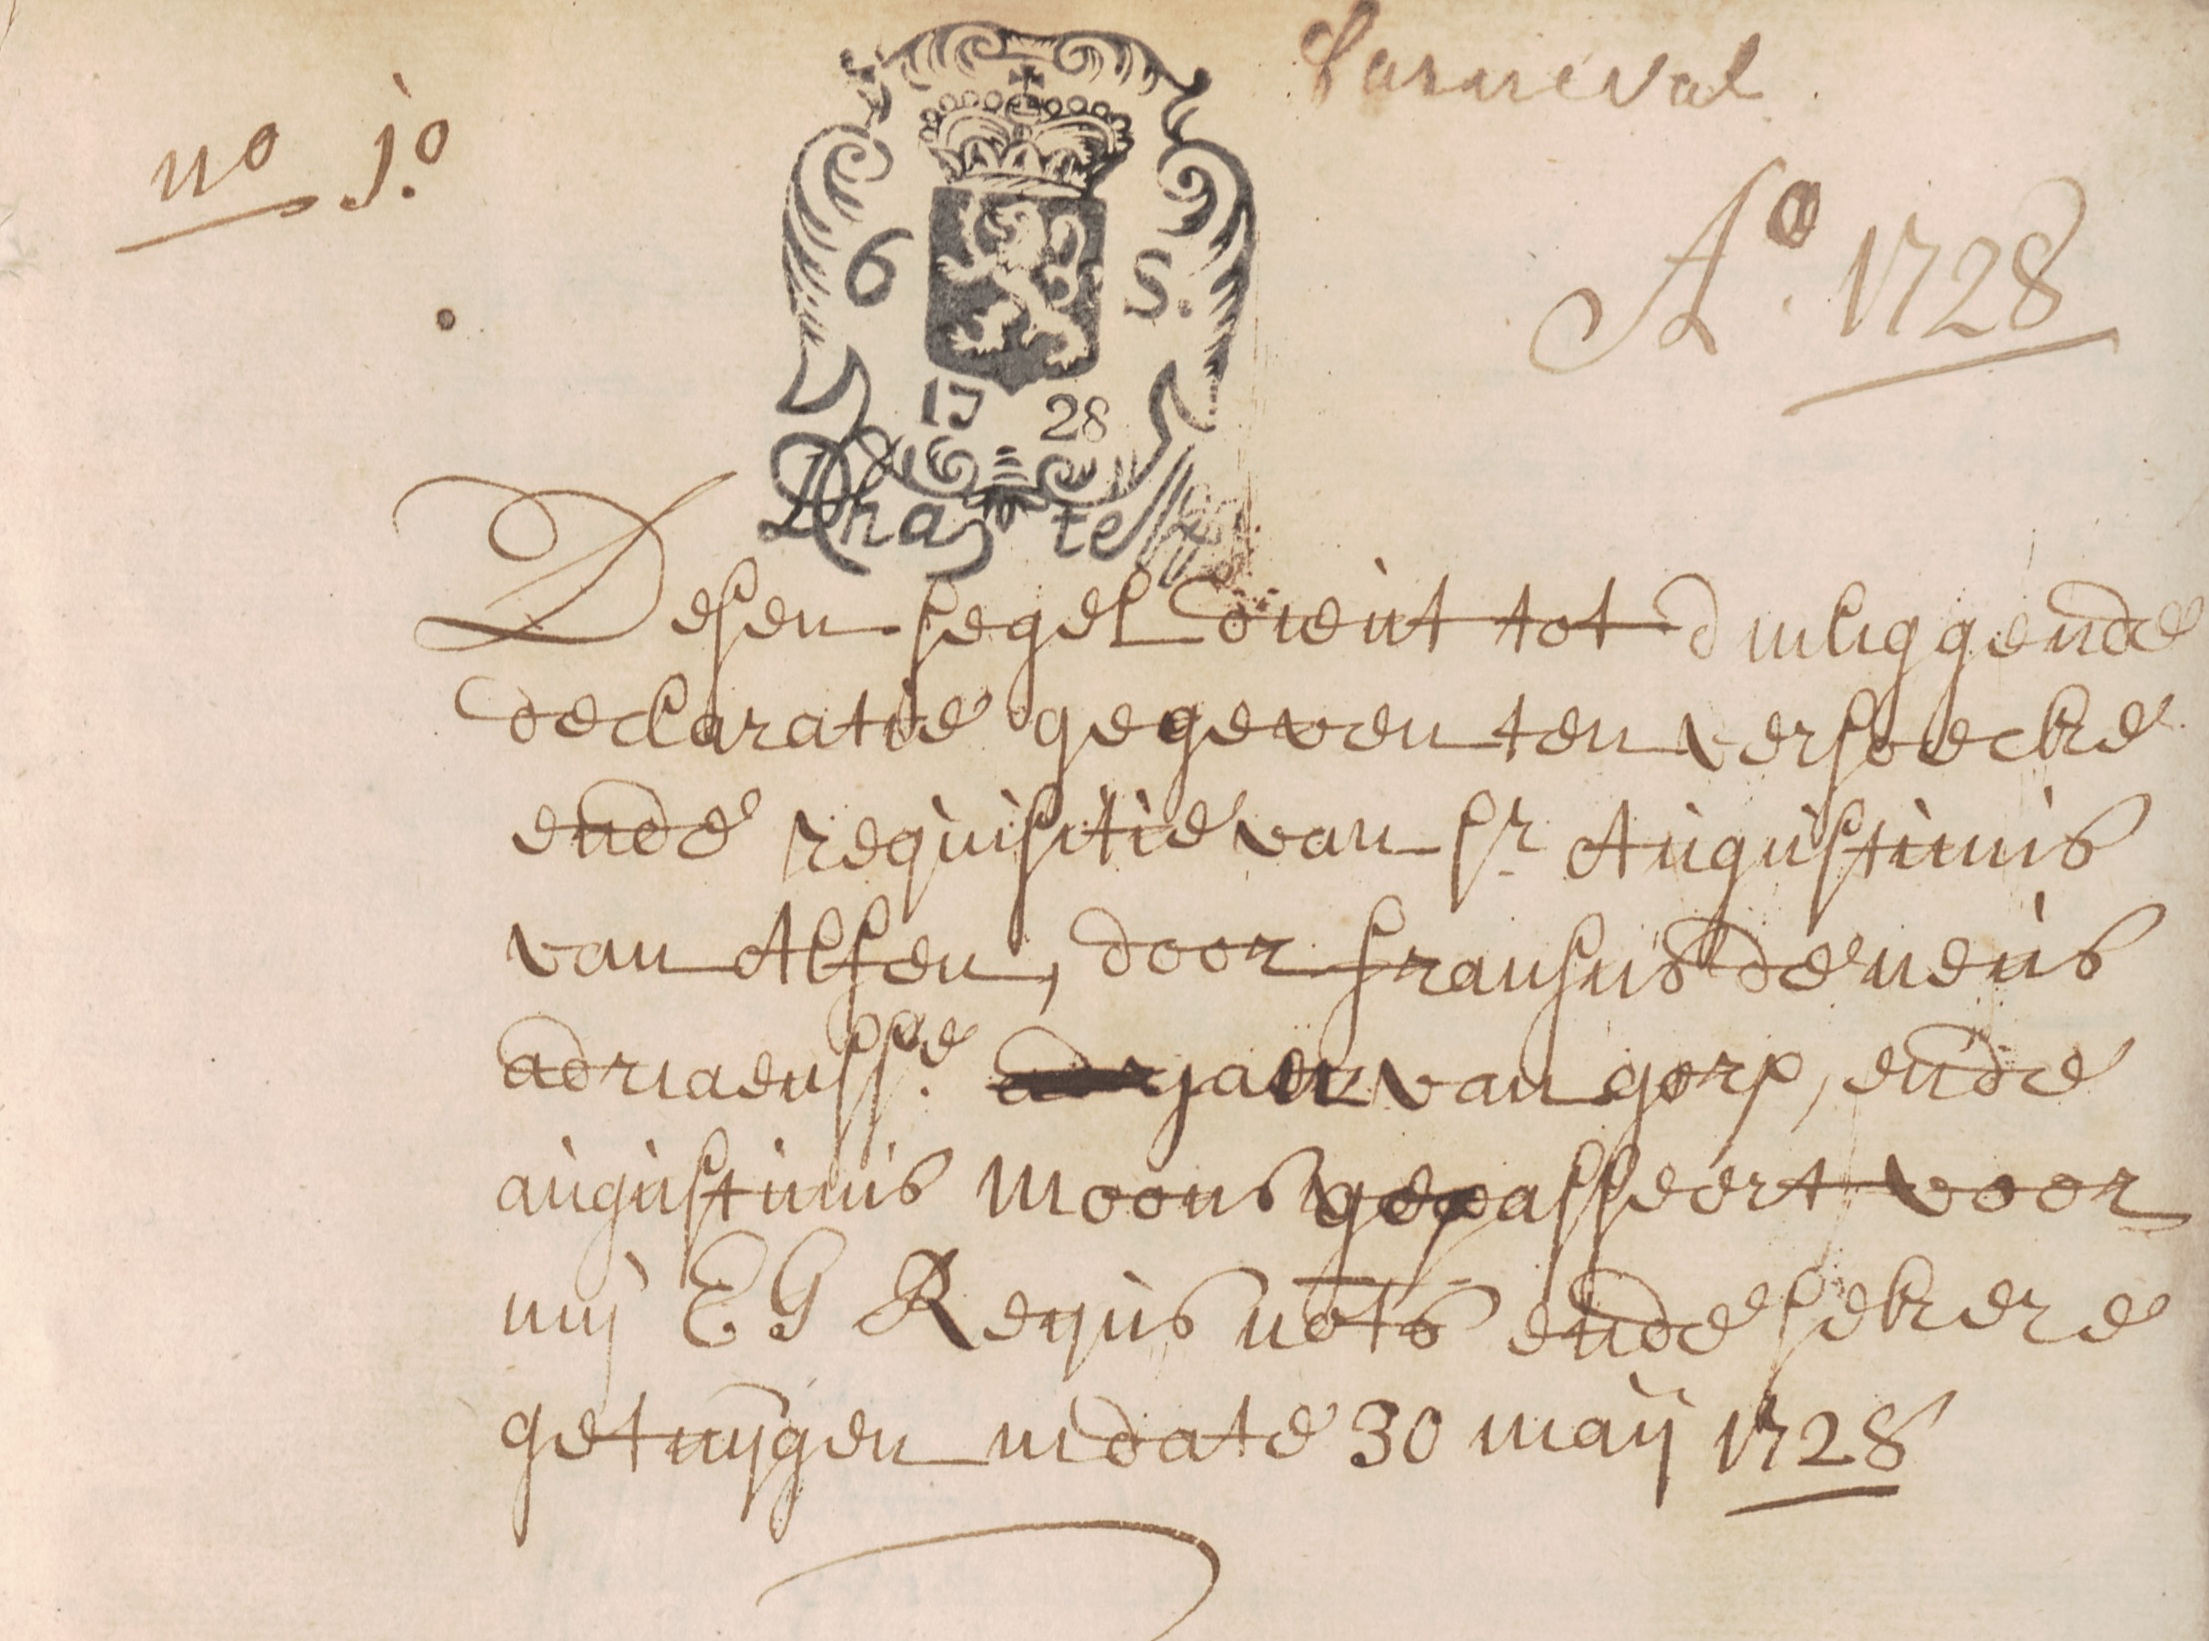 Carneval
no 1.o
Ao. 1728
6 S.
17 28
Desen segel dient tot d inliggende
declaratie gegeven ten versoecke
ende requisitie van Sr Augustinus
van Alfen, door fransus de neus
adriaenss.e jan van gorp, ende
augustinus moons gepasseert voor
mij E G Reijns nots ende sekere
getuijgen in date 30 maij 1728